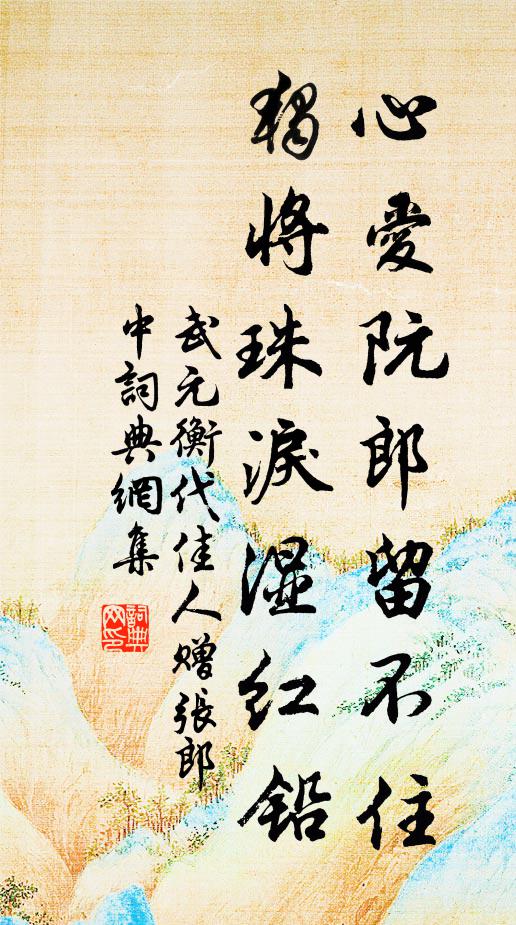 心愛阮郎留不住
獨將珠淚湿红鉛
武元衡代佳人赠張郎
中詞典網集
詞典网印